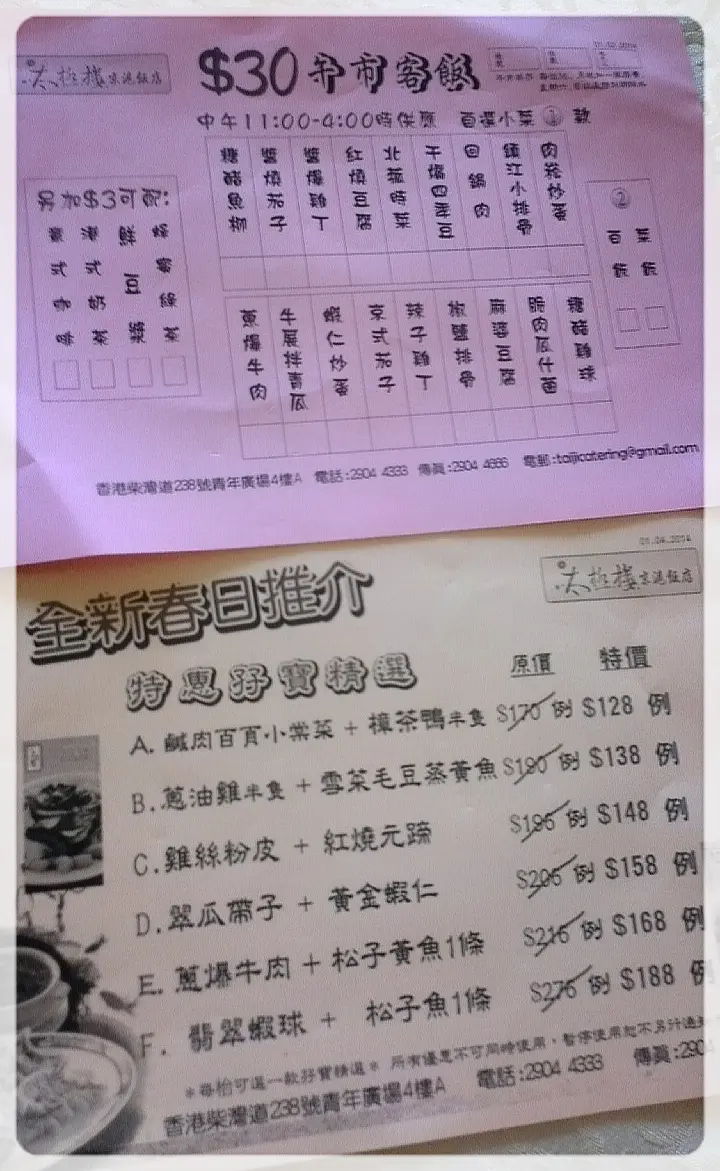 太極樓京滬飯店
$30午市客飯
中午11:00-4:00時供應 自選小菜 ① 款
糖醋魚柳
醬燒茄子
醬爆雞丁
紅燒豆腐
北菰時菜
干煸四季豆
回鍋肉
鎮江小排骨
肉崧炒蛋
②
白飯
菜飯
另加$3可配:
凍式咖啡
港式奶茶
鮮豆漿
蜂蜜綠茶
蔥爆牛肉
牛展拌青瓜
蝦仁炒蛋
京式茄子
辣子雞丁
椒鹽排骨
麻婆豆腐
脆肉瓜什菌
糖醋雞球
香港柴灣道238號青年廣場4樓A 電話:2904 4333 傳真:2904 4666 電郵:taijicatering@gmail.com
太極樓京滬飯店
全新春日推介
特惠孖寶精選 原價 特價
A. 鹹肉百頁小棠菜 + 樟茶鴨半隻 $170 例 $128 例
B. 蔥油雞半隻 + 雪菜毛豆蒸黃魚 $190 例 $138 例
C. 雞絲粉皮 + 紅燒元蹄 $195 例 $148 例
D. 翠瓜帶子 + 黃金蝦仁 $205 例 $158 例
E. 蔥爆牛肉 + 松子黃魚1條 $215 例 $168 例
F. 翡翠蝦球 + 松子魚1條 $275 例 $188 例
*每枱可選一款孖寶精選* 所有優惠不可同時使用,暫停使用恕不另行通知
香港柴灣道238號青年廣場4樓A 電話:2904 4333 傳真:290